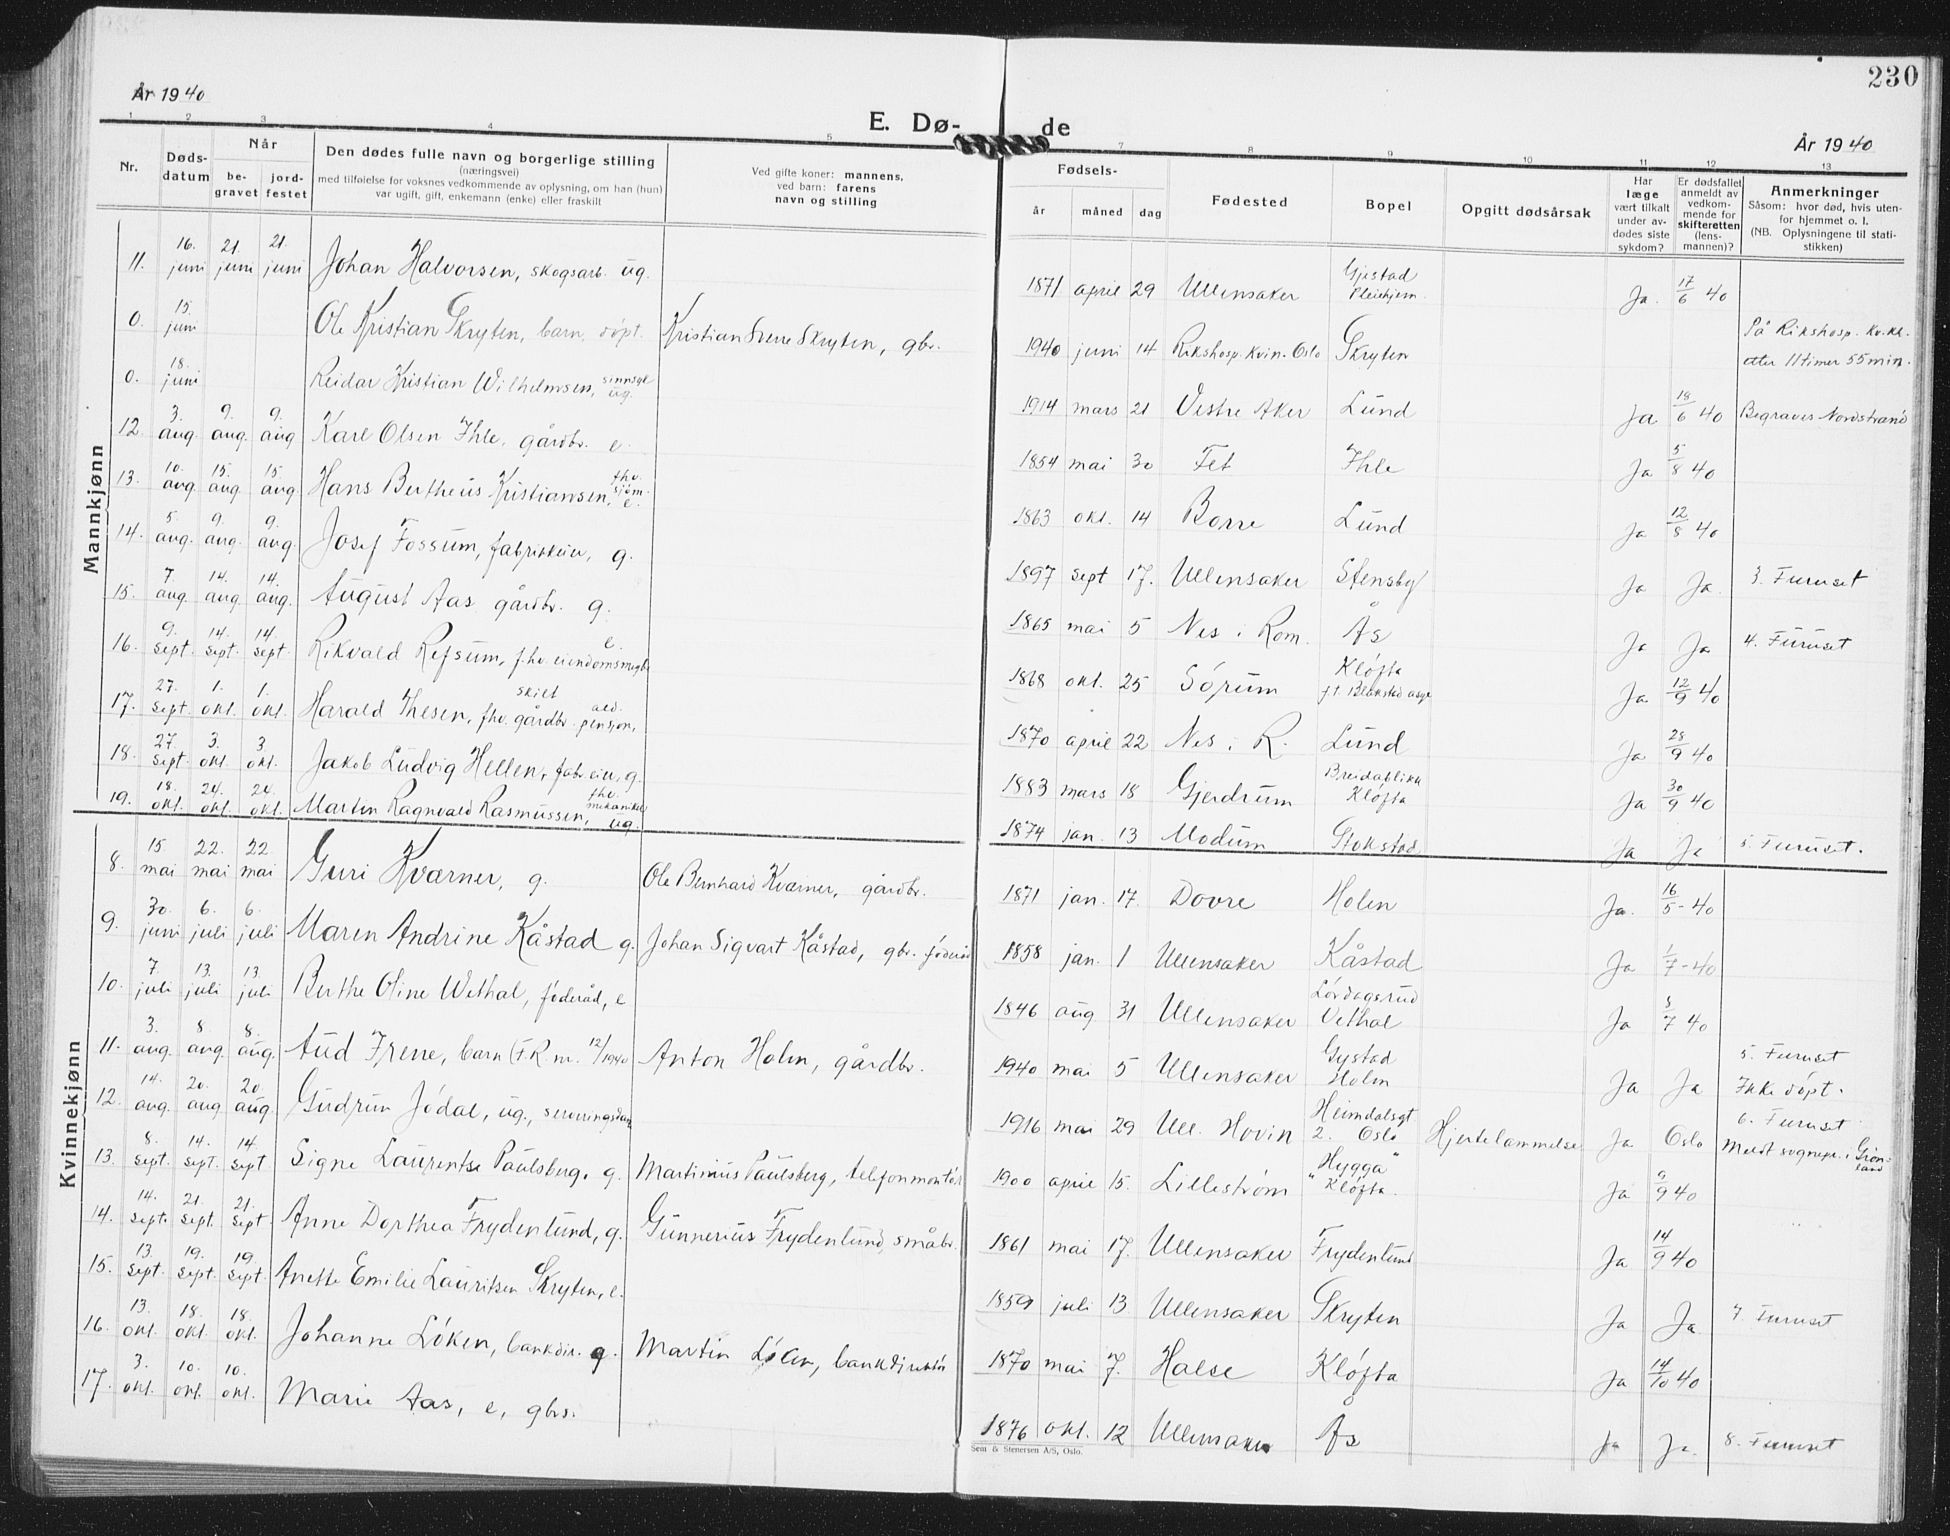 230
År 1940
E. Dø- de
År 1940
1 2 3 4 5 7 8 9 10 11 12 13
Nr.
Døds-
datum
Når
be-
gravet
jord-
festet
Den dødes fulle navn og borgerlige stilling
(næringsvei)
med tilføielse for voksnes vedkommende av oplysning, om han (hun)
var ugift, gift, enkemann (enke) eller fraskilt
Ved gifte koner: mannens,
ved barn: farens
navn og stilling
Fødsels-
år måned dag
Fødested
Bopel
Opgitt dødsårsak
Har
læge
vært tilkalt
under av-
dødes siste
sykdom?
Er dødsfallet
anmeldt av
vedkom-
mende for
skifteretten
(lens-
mannen)?
Anmerkninger
Såsom: hvor død, hvis uten-
for hjemmet o. l.
(NB. Oplysningene til stati-
stikken)
Mannkjønn
11. 16. juni 21. juni 21. juni Johan Halvorsen, skogsarb. ug. 1871 april 29 Ullensaker Gjestad Pleiehjem. Ja. 17/6 40
0. 15. juni Ole Kristian Skryten, barn, døpt. Kristian Sverre Skryten, gbr. 1940 juni 14 Rikshosp. Kvin. Oslo Skryten På Rikshosp. kv.kl. etter 11 timer 55 min.
0. 18. juni Reidar Kristian Wilhelmsen, sinnsyk ug. 1914 mars 21 Vestre Aker Lund ja 18/6 40 Begraves Nordstrand
12. 3. aug. 9. aug. 9. aug Karl Olsen Ihle, gårdbr. e. 1854 mai 30 Fet Ihle Ja 5/8 40
13. 10. aug. 15. aug. 15. aug. Hans Bertheus Kristiansen, fhv. sjøm. e. 1863 okt. 14 Borre Lund Ja 12/8 40
14. 5. aug. 9. aug. 9. aug. Josef Fossum, fabrikkeier, g. 1897 sept 17. Ullensaker Stensby Ja Ja. 3. Furuset
15. 7. aug. 14. aug. 14. aug. August Aas gårdbr. g. 1865 mai 5 Nes i Rom. Ås Ja Ja 4. Furuset
16. 9. sept. 14. sept. 14. sept. Rikvald Refsum, f.hv. eiendomsmegl. e. 1868 okt. 25 Sørum Kløfta f.t. Blakstad asyl Ja 12/9 40
17. 27. sept. 1. okt. 1. okt. Harald Thesen, fhv. gårdbr. skilt ald. pensjon, 1870 april 22 Nes i R. Lund Ja 28/9 40
18. 27. sept. 3. okt. 3 okt. Jakob Ludvig Hellen, fabr. eier, g. 1883 mars 18 Gjerdrum Breidablikk Kløfta Ja 30/9 40
19. 18. okt. 24. okt. 24. okt. Martin Ragnvald Rasmussen, fhv. mekaniker ug. 1874 jan. 13 Modum Stokstad Ja Ja 5. Furuset.
Kvinnekjønn
8. 15 mai 22. mai 22 mai Guri Kværner, g. Ole Bernhard Kværner, gårdbr. 1871 jan. 17. Dovre Holen Ja. 16/5-40
9. 30. juni 6. juli 6. juli Maren Andrine Kåstad g. Johan Sigvart Kåstad, gbr. føderåd 1858 jan. 1 Ullensaker Kåstad Ja 1/7-40
10. 7. juli 13. juli 13. juli Berthe Oline Wethal, føderåd, e 1846 aug 31 Ullensaker Lørdagsrud Vethal Ja 8/7 40
11. 3. aug. 8. aug. 8. aug. Aud Irene, barn (F.R. nr. 12/1940 Anton Holm, gårdbr. 1940 mai 5 Ullensaker Gystad Holm Ja Ja 5. Furuset Ikke døpt.
12. 14. aug. 20. aug 20. aug. Gudrun Jødal, ug., serveringsdame 1916 mai 29 Ull. Hovin Heimdalsgt 2. Oslo Hjertelammelse Ja Oslo 6. Furuset Meldt sognepr. i Grønland
13. 8. sept. 14. sept. 14. sept Signe Laurentse Paulsberg, g. Martinius Paulsberg, telefonmontør 1900 april 15. Lillestrøm "Hygga" Kløfta. Ja 9/9 40
14. 14. sept. 21. sept. 21. sept. Anne Dorthea Frydenlund, g. Gunnerius Frydenlund, småbr. 1861 mai 17. Ullensaker Frydenlund Ja 14/9 40
15. 13. sept. 19. sept. 19. sept. Anette Emilie Lauritsen Skryten, e. 1859 juli 13 Ullensaker Skryten Ja Ja 7. Furuset
16. 13. okt. 18. okt. 18. okt. Johanne Løken, bankdir. g. Martin Løken, bankdirektør 1870 mai 7. Halse Kløfta Ja 14/10 40
17. 3. okt. 10. okt. 10. okt. Marie Aas, e, gbrs. 1876 okt. 12 Ullensaker Ås Ja Ja. 8. Furuset
Sem & Stenersen A/S, Oslo.